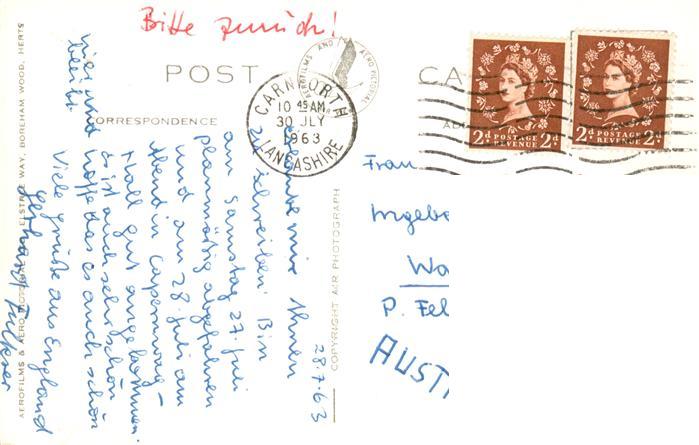 Bitte zurück!
POST CA
CORRESPONDENCE
AD
AEROFILMS AND AERO PICTORIAL
CARNFORTH
10 45 AM
30 JLY
1963
LANCASHIRE
2d POSTAGE REVENUE 2d
2d POSTAGE REVENUE 2d
28.7.63
erlaube mir Ihnen
zu schreiben! Bin
am Samstag 27. Juli
planmäßig abgefahren
und am 28. Juli am
Abend in Capernwray-
Hall gut angekommen.
Es ist auch sehr schön
hier und hoffe das es auch schön
bleibt.
Viele Grüße aus England
Frau
Ingebo
Wo
P. Fel
AUST
COPYRIGHT AIR PHOTOGRAPH
AEROFILMS & AERO PICTORIAL ELSTREE WAY, BOREHAM WOOD, HERTS